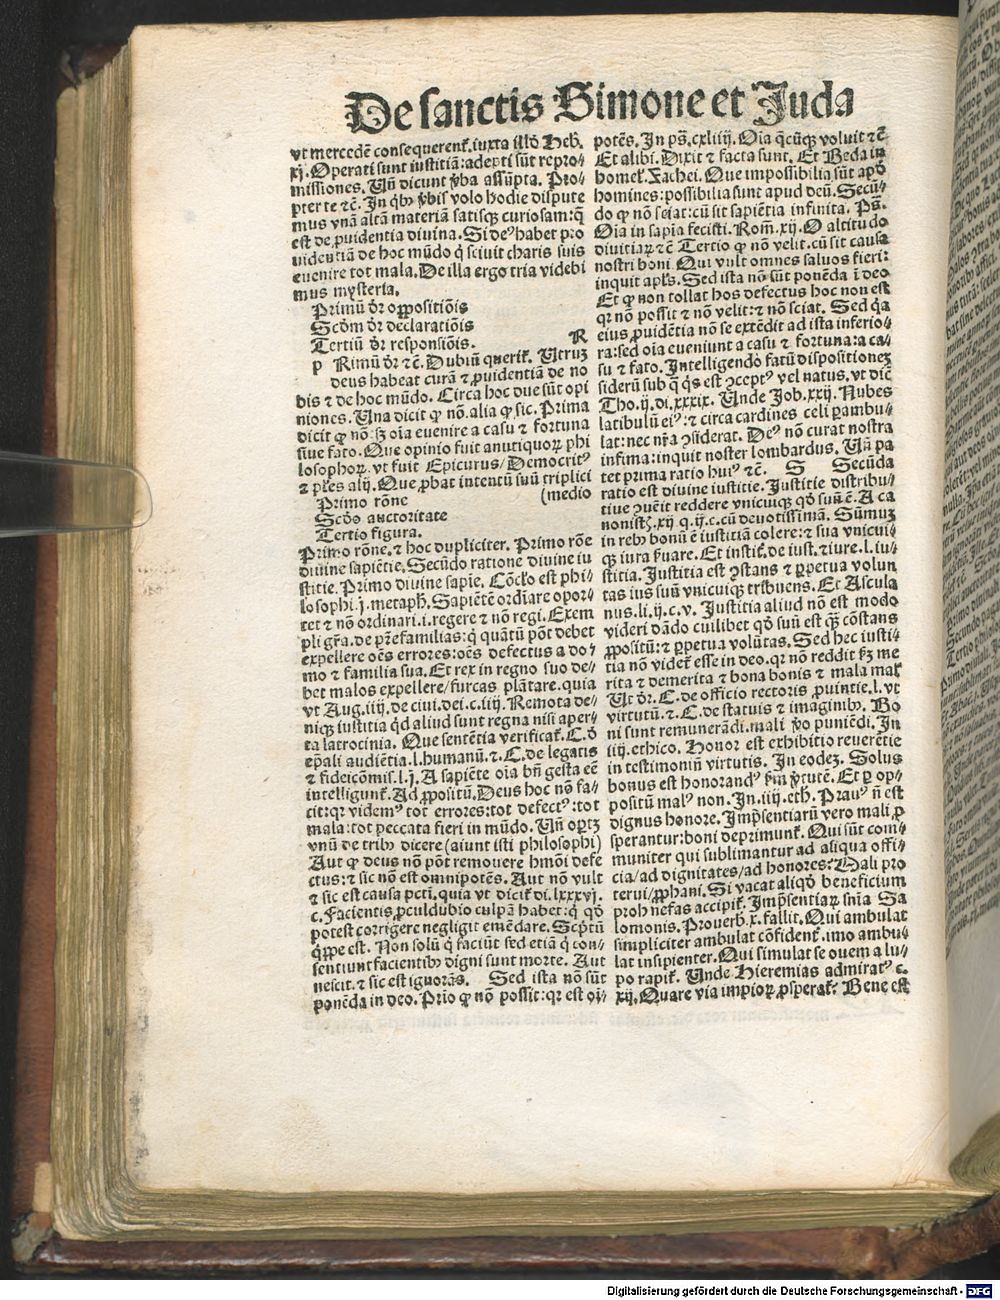 De sanctis Simone et Juda
vt mercedē consequerent᷑. iuxta illď Heb.
xj. Operati sunt iustitiā: adepti sūt repro-
missiones. Vñ dicunt v̓ba assūpta. Pro-
pter te ⁊c̄. In qͥbꝰ v̓bis volo hodie dispute
mus vnā altā materiā satisqꝫ curiosam: q̄
est de ꝓuidentia diuina. Si deꝰ habet pro
uidentiā de hoc mūdo q̓ sciuit charis suis
euenire tot mala. De illa ergo tria videbi
mus mysteria.
Primū d̓r oppositiōis
Scďm d̓r declaratiōis
Tertiū d̓r responsiōis.
R
p Rimū d̓r ⁊c̄. Dubiū querit᷑. Vtruꝫ
deus habeat curā ⁊ ꝓuidentiā de no
bis ⁊ de hoc mūdo. Circa hoc due sūt opi
niones. Una dicit ꝙ nō. alia ꝙ sic. Prima
dicit ꝙ nō: sꝫ oīa euenire a casu ⁊ fortuna
siue fato. Que opinio fuit antiquoꝝ phi
losophoꝝ. vt fuit Epicurus/ Democritꝰ
⁊ pl̓es alij. Que ꝓbat intentū suū triplici
(medio
Primo rōne
Scďo auctoritate
Tertio figura.
Primo rōne. ⁊ hoc dupliciter. Primo rōe
diuine sapiētie. Secūdo ratione diuine iu
stitie. Primo diuine sapie. Cōclo est phi-
losophi .j. metaph̄. Sapiētē ordīare opor-
tet ⁊ nō ordinari. i. regere ⁊ nō regi. Exem
pli gr̄a. de pr̄efamilias: q̓ quātū pōt debet
expellere oēs errores: oēs defectus a do-
mo ⁊ familia sua. Et rex in regno suo de-
bet malos expellere/ furcas plātare. quia
vt Aug. iiij. de ciui. dei. c. iiij. Remota de-
niqꝫ iustitia qd̓ aliud sunt regna nisi aper-
ta latrocinia. Que sentētia verificat᷑. C. ď
ep̄ali audiētia. l. humanū. ⁊. C. de legatis
⁊ fideicōmis. l. j. A sapiēte oīa bn̄ gesta eē
intelligunt᷑. Ad ꝓpositū. Deus hoc nō fa-
cit: qꝛ videmꝰ tot errores: tot defectꝰ: tot
mala: tot peccata fieri in mūdo. Vñ oꝑtꝫ
vnū de tribꝰ dicere (aiunt isti philosophi)
Aut ꝙ deus nō pōt remouere hmōi defe
ctus: ⁊ sic nō est omnipotēs. Aut nō vult
⁊ sic est causa pctī. quia vt dicit᷑ di. lxxxvj.
c. Facientis ꝓculdubio culpā habet: q̓ qď
potest corrigere negligit emēdare. Scptū
q̓ppe est. Non solū q̓ faciūt sed etiā q̓ con-
sentiunt facientibꝰ digni sunt morte. Aut
nescit. ⁊ sic est ignorās. Sed ista nō sūt
ponēda in deo. Prīo ꝙ nō possit: qꝛ est oī-
potēs. In ps̄. cxliiij. Oīa q̄cūqꝫ voluit ⁊c̄
Et alibi. Dixit ⁊ facta sunt. Et Beda in
homel̓. Zachei. Que impossibilia sūt apď
homines: possibilia sunt apud deū. Secū-
do ꝙ nō sciat: cū sit sapiētia infinita. Ps̄.
Oīa in sapīa fecisti. Rom̄. xij. O altitudo
diuitiaꝝ ⁊c̄ Tertio ꝙ nō velit. cū sit causa
nostri boni. Qui vult omnes saluos fieri:
inquit apl̓s. Sed ista nō sūt ponēda ī deo
Et ꝙ non tollat hos defectus hoc non est
qꝛ nō possit ⁊ nō velit: ⁊ nō sciat. Sed q̓a
eius ꝓuidētia nō se extēdit ad ista inferio-
ra: sed oīa eueniunt a casu ⁊ fortuna: a ca-
su ⁊ fato. Intelligendo fatū dispositionez
siderū sub q̓ q̓s est ꝯceptꝰ vel natus. vt dic̄
Tho. ij. di. xxxix. Unde Job. xxij. Nubes
latibulū eiꝰ: ⁊ circa cardines celi ꝑambu-
lat: nec nr̄a ꝯsiderat. Deꝰ nō curat nostra
infima: inquit noster lombardus. Vñ pa
tet prima ratio huiꝰ ⁊c̄. S Secūda
ratio est diuine iustitie. Justitie distribu-
tiue ꝯuēit reddere vnicuiqꝫ qď suū ē. A ca
nonistꝫ. xij q. ij. c. cū deuotissimā. Sūmuꝫ
in rebꝰ bonū ē iustitiā colere: ⁊ sua vnicui-
qꝫ iura ẜuare. Et instit᷑. de iust. ⁊ iure. l. iu-
stitia. Justitia est ꝯstans ⁊ ꝑpetua volun
tas ius suū vnicuiqꝫ tribuens. Et Ascula
nus. li. ij. c. v. Justitia aliud nō est modo
videri dādo cuilibet qď suū est q̄ꝫ cōstans
ꝓpositū: ⁊ ꝑpetua volūtas. Sed hec iusti-
tia nō videt᷑ esse in deo. qꝛ nō reddit ẜꝫ me
rita ⁊ demerita ⁊ bona bonis ⁊ mala mał
Vt d̓r. C. de officio rectoris ꝓuintie. l. vt
virtutū. ⁊. C. de statuis ⁊ imaginibꝰ. Bo
ni sunt remunerādi. mali v̓o puniēdi. In
iiij. ethico. Honor est exhibitio reuerētie
in testimoniū virtutis. In eodeꝫ. Solus
bonus est honorandꝰ ẜm v̓tutē. Et ꝑ op-
positū malꝰ non. In. iiij. eth. Prauꝰ n̄ est
dignus honore. Imp̄sentiarū vero mali ꝓ
sperantur: boni deprimunt᷑. Qui sūt com-
muniter qui sublimantur ad aliqua offi-
cia/ ad dignitates/ ad honores? Mali pro
terui/ ꝓphani. Si vacat aliqď beneficium
proh nefas accipit᷑. Imp̄sentiaꝝ sn̄ia Sa
lomonis. Prouerb. x. fallit. Qui ambulat
simpliciter ambulat cōfident᷑. imo ambu-
lat insipienter. Qui simulat se ouem a lu-
po rapit᷑. Unde Hieremias admiratꝰ c.
xij. Quare via impioꝝ ꝓsperat᷑? Bene est
Digitalisierung gefördert durch die Deutsche Forschungsgemeinschaft - DFG